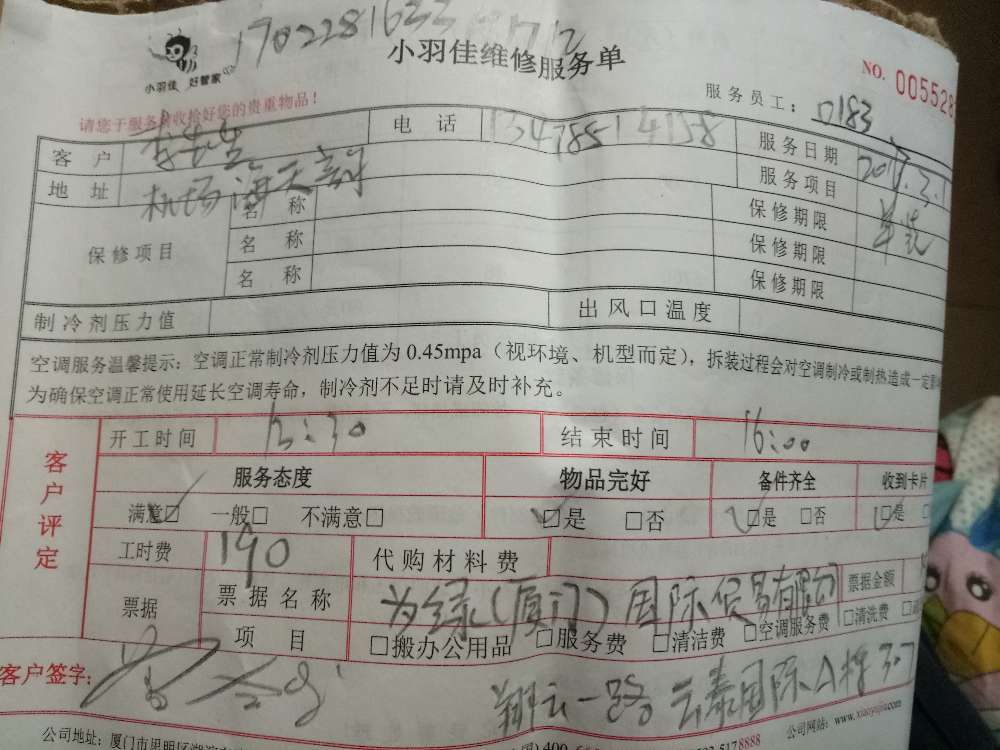 1702281633
小羽佳 好管家
小羽佳维修服务单
NO. 005528
服务员工: 0183
请您于服务前收拾好您的贵重物品!
客户 李先生 电话 13478514158 服务日期
地址 机场海天 服务项目 单装
保修项目 名称 保修期限
名称 保修期限
名称 保修期限
制冷剂压力值 出风口温度
空调服务温馨提示: 空调正常制冷剂压力值为 0.45mpa (视环境、机型而定), 拆装过程会对空调制冷或制热造成一定
为确保空调正常使用延长空调寿命, 制冷剂不足时请及时补充。
客户评定
开工时间 12:30 结束时间 16:00
服务态度 物品完好 备件齐全 收到卡片
满意□ 一般□ 不满意□ □是 □否 □是 □否 □是
工时费 190 代购材料费
票据 票据名称 为绿(厦门)国际贸易有限公司 票据金额
项目 □搬办公用品 □服务费 □清洁费 □空调服务费 □清洗费
客户签字:
翔云一路 云泰国际A栋307
公司地址: 厦门市思明区湖滨
公司网站: www.xiaoyujia.com